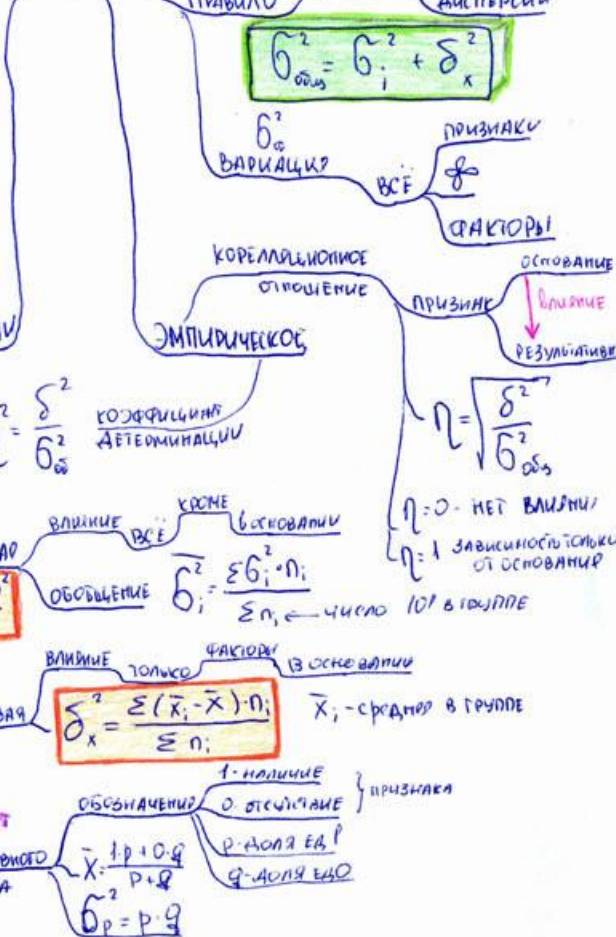 ПРАВИЛО
ДИСПЕРСИИ
σ²общ = σ²i + δ²x
σ²об
ВАРИАЦИЯ
ВСЁ
ПРИЗНАКИ
ФАКТОРЫ
КОРЕЛЛЯЦИОННОЕ
ОТНОШЕНИЕ
ЭМПИРИЧЕСКОЕ
ПРИЗНАК
ОСНОВАНИЕ
ВЛИЯНИЕ
РЕЗУЛЬТАТИВН
² = δ² / σ²об
КОЭФФИЦИЕНТ
ДЕТЕРМИНАЦИИ
η = √(δ² / σ²общ)
η = 0 - НЕТ ВЛИЯНИЯ
η = 1 ЗАВИСИМОСТЬ ТОЛЬКО
ОТ ОСНОВАНИЯ
ВЛИЯНИЕ ВСЁ КРОМЕ В ОСНОВАНИИ
ОБОБЩЕНИЕ
σ̄²i = Σσ²i·ni / Σni ← ЧИСЛО В ГРУППЕ
ВЛИЯНИЕ ТОЛЬКО ФАКТОРЫ В ОСНОВАНИИ
ВАЯ
δ²x = Σ(x̄i - x̄)·ni / Σni
x̄i - СРЕДНЯЯ В ГРУППЕ
ОБОЗНАЧЕНИЯ
1 - НАЛИЧИЕ
0 - ОТСУТСТВИЕ
ПРИЗНАКА
p - ДОЛЯ ЕД 1
q - ДОЛЯ ЕД 0
ВНОГО
x̄ = 1·p + 0·q / p + q
σ²p = p·q